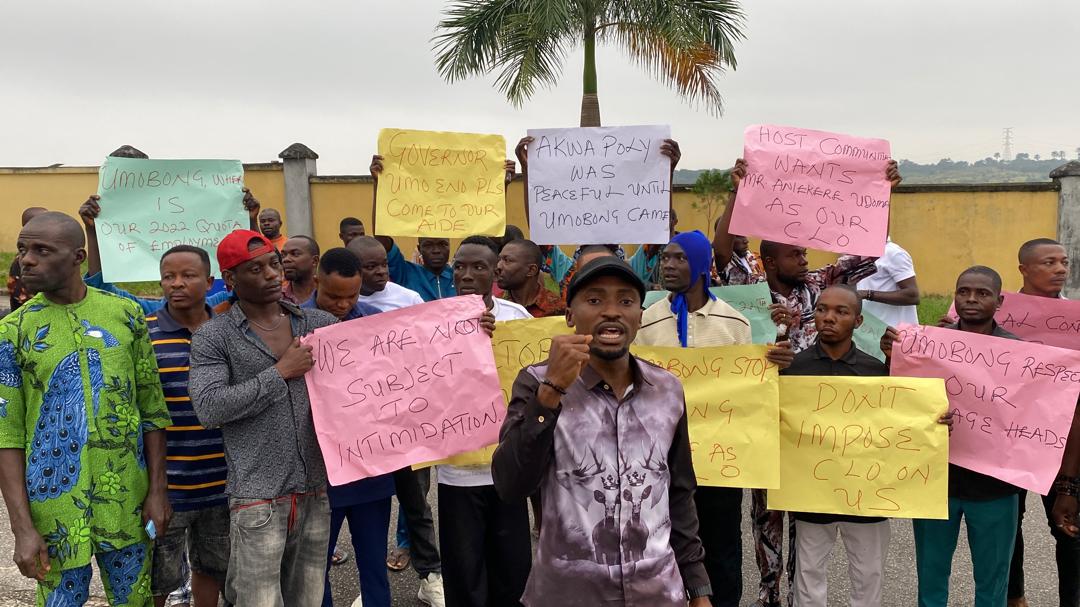 UMOBONG, WHERE
IS
OUR 2022 QUOTA
OF EMPLOYME
GOVERNOR
UMO ENO PLS
COME TO OUR
AIDE
AKWA POLY
WAS
PEACEFUL UNTIL
UMOBONG CAME
HOST COMMUNITI
WANTS
MR. ANIEKERE UDOM
AS OUR
CLO
WE ARE NOT
SUBJECT
TO
INTIMIDATION.
STOP
UMOBONG STOP
NG
E AS
O
DON'T
IMPOSE
CLO ON
US
UMOBONG RESPEC
OUR
AGE HEADS
22TH
AL CON